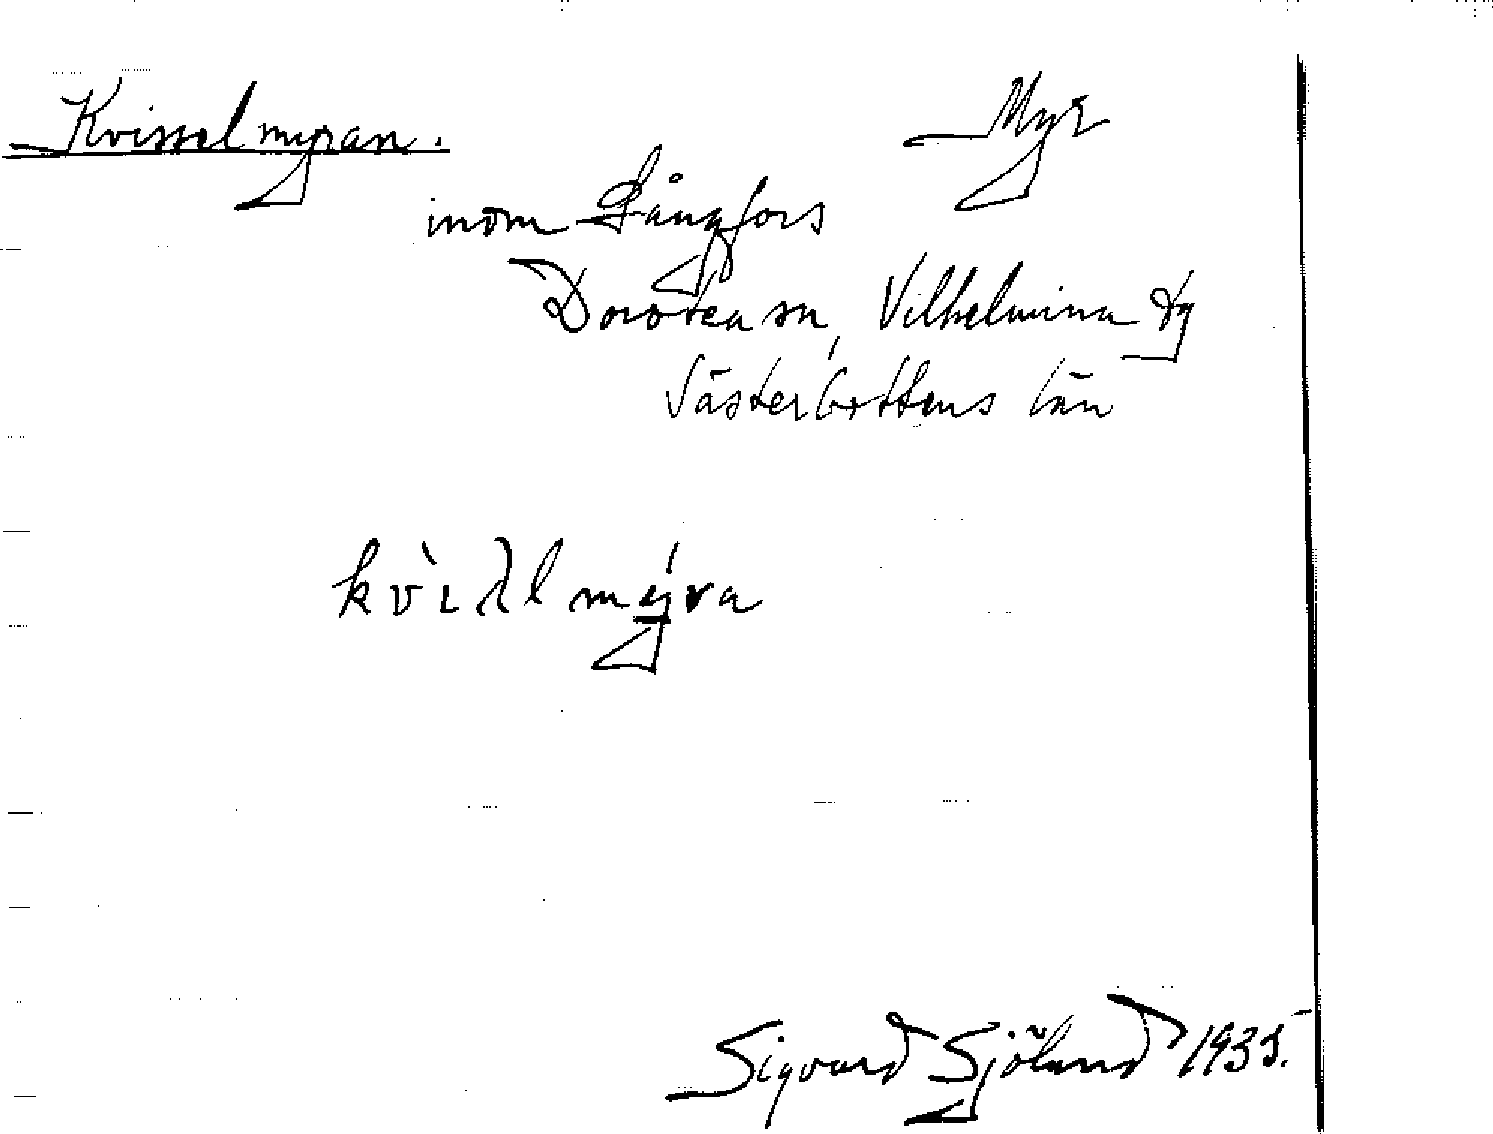 Kvisselmyran. Myr
inom Långfors
Dorotea sn, Vilhelmina tg
Västerbottens län
Sigvard Sjölund 1935.